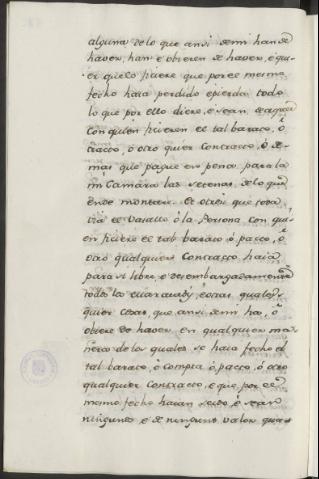 alguna de lo que ansi de mi han de
haver, han e obieren de haver, e qui-
er que lo ficiere que por el mesmo
fecho haia perdido e pierda todo
lo que por ello diere, e sean de aquel
con quien ficieren el tal barato, ó
tracto, ó otro quier contracto, ó de-
mas que pague en pena para la
mi Camara las setenas, de lo que
ende montare. E otrosi que toda
via el Vasallo ó la Persona con qui-
en ficiere el tal barato ó pacto, ó
otro qualquier contracto haia
para si libre, e desembargadamente
todos los maravedis, e otras quales-
quier cosas, que ansi de mi há, ó
obiere de haver en qualquier ma-
nera de los quales se haia fecho el
tal barato, ó compra ó pacto, ó otro
qualquier contracto, e que por el
mesmo fecho haian seido, é sean
ningunos e de ninguno valor quales